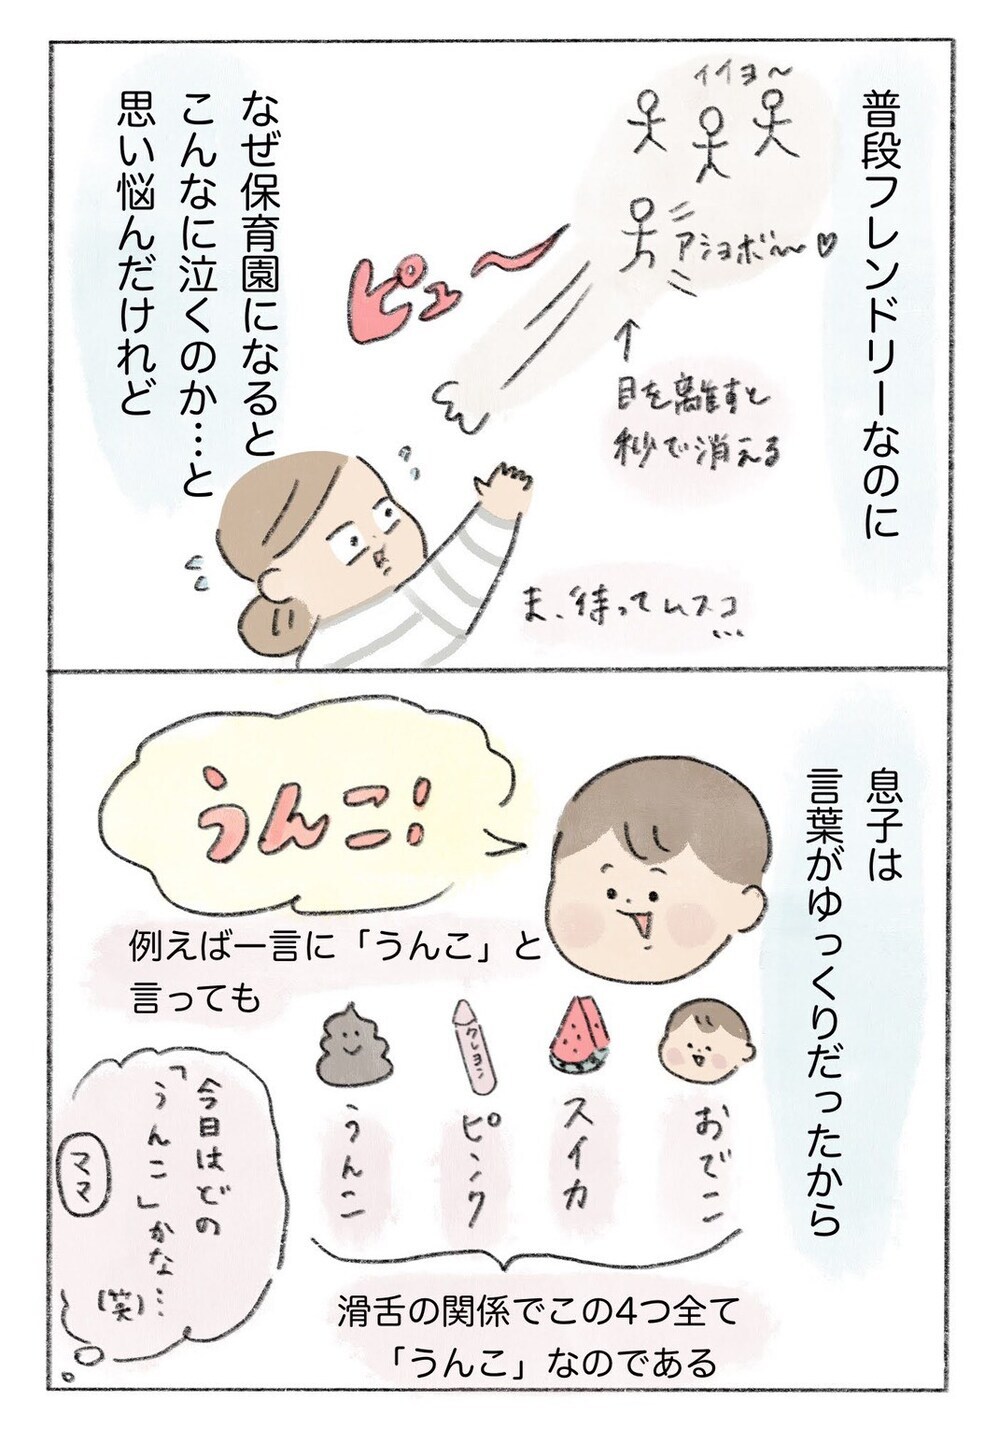 普段フレンドリーなのに
イイヨ〜
アショボ〜♡
↑
目を離すと
秒で消える
ピュ〜
ま、待ってムスコ…
なぜ保育園になると
こんなに泣くのか…と
思い悩んだけれど
息子は
言葉がゆっくりだったから
うんこ!
例えば一言に「うんこ」と
言っても
おでこ
スイカ
クレヨン
ピンク
うんこ
滑舌の関係でこの4つ全て
「うんこ」なのである
今日はどの
「うんこ」かな…
(笑)
ママ